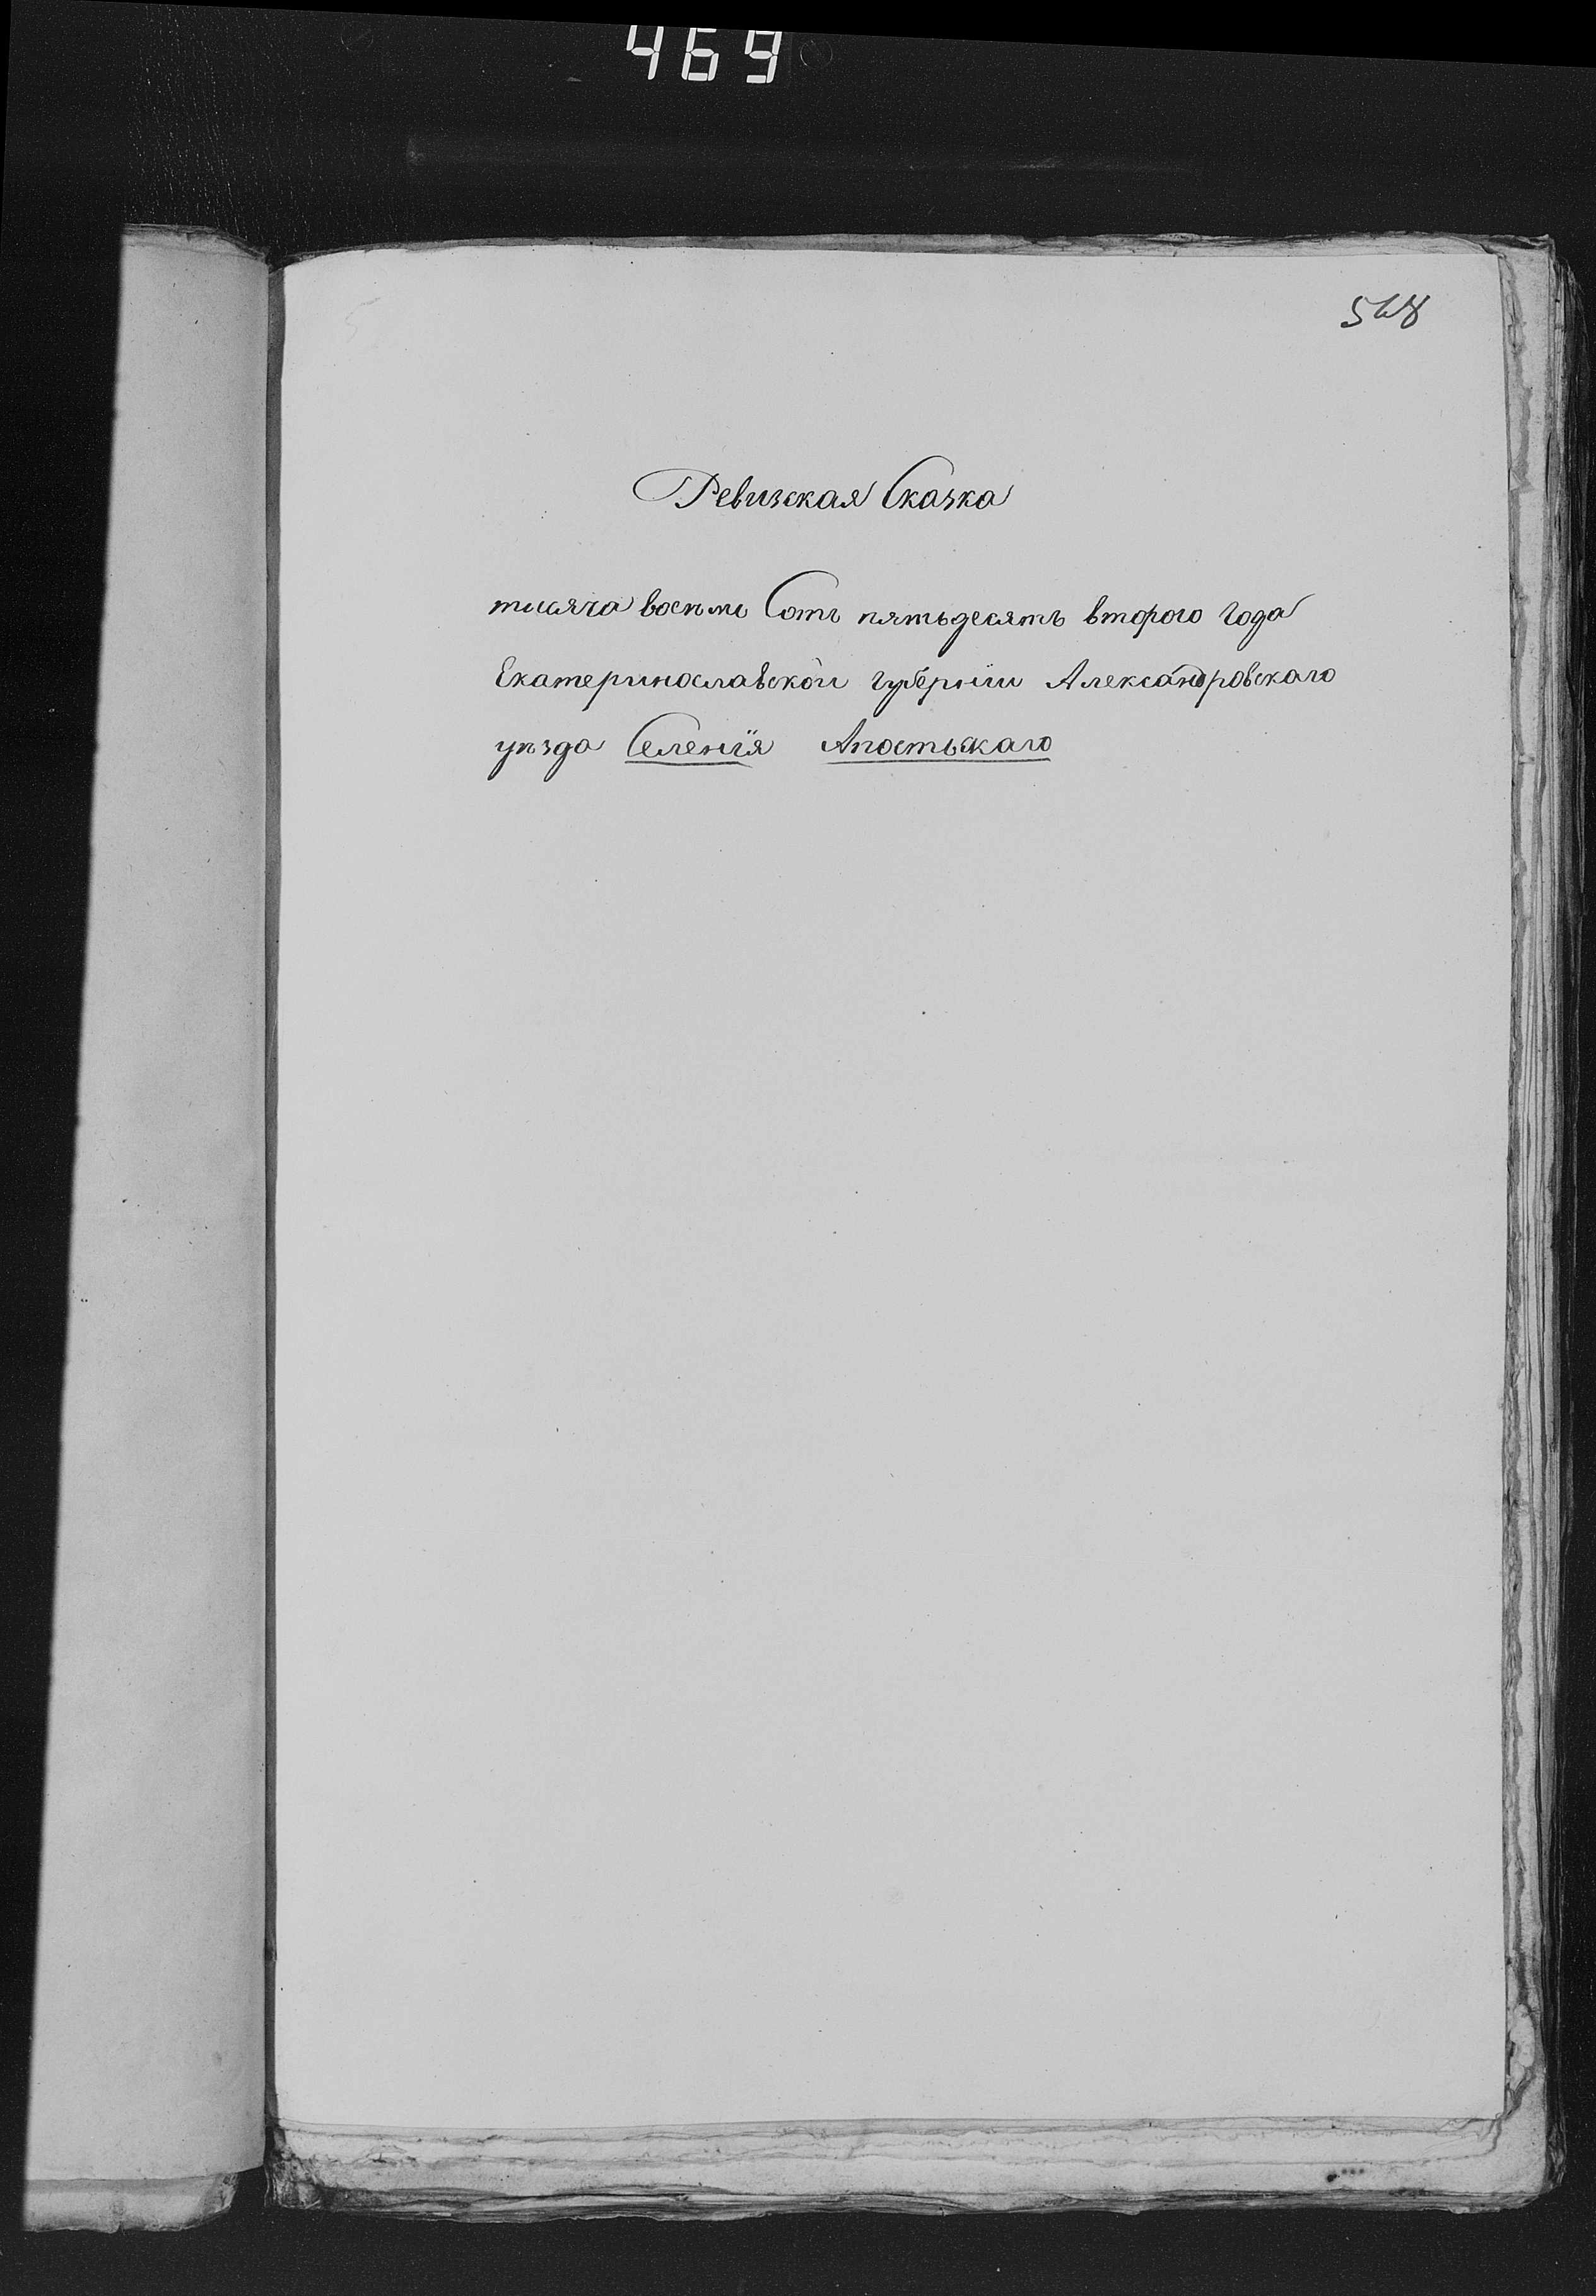 469
548
Ревизская Сказка
тисяча восьмь Сотъ пятьдесятъ второго года
Екатеринославской губернїи Александровскаго
уѣзда Селенїя Апостьскаго